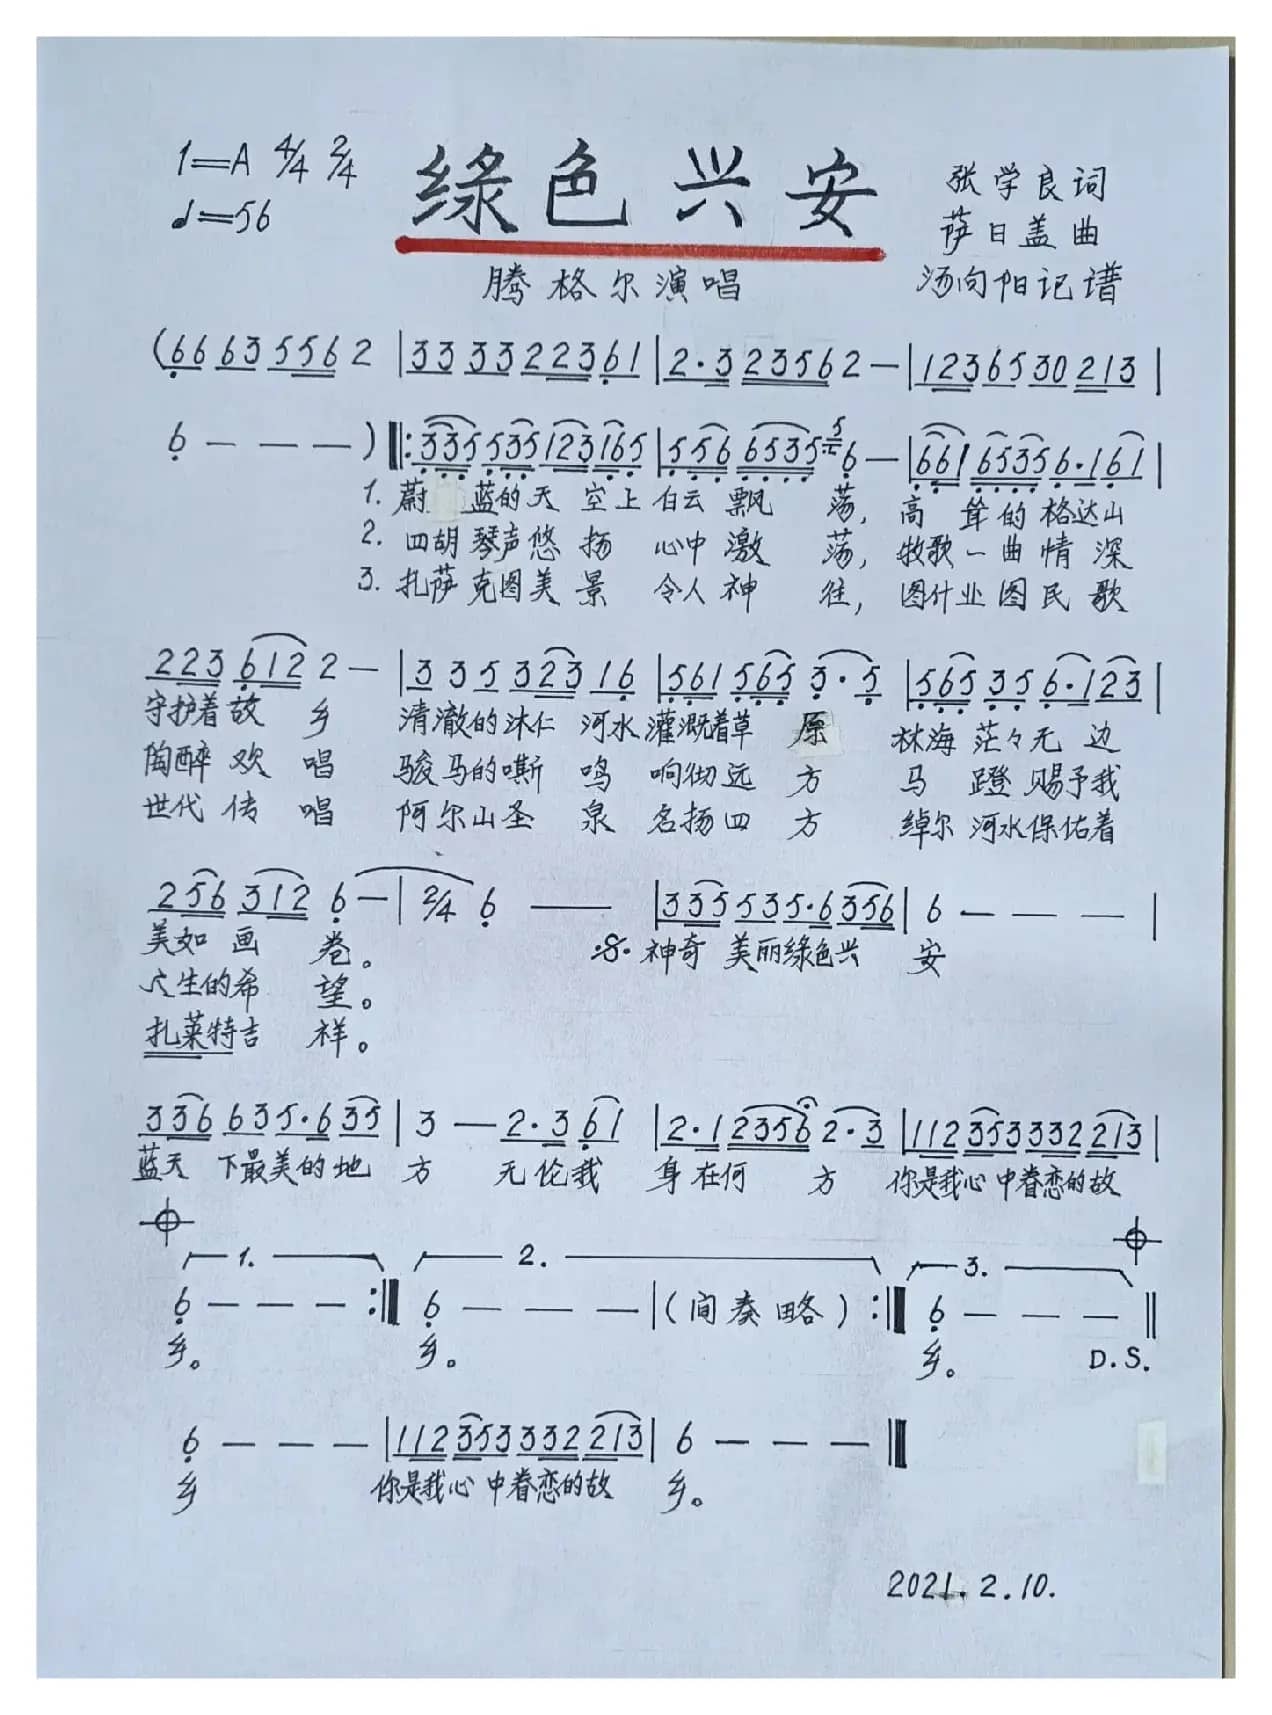 1=A 4/4 2/4
♩=56
綠色兴安
张学良词
萨日盖曲
汤向阳记谱
腾格尔演唱
(66 63 556 2 | 33 33 22361 | 2·3 23562 — | 123 65 30 213 |
6 — — — ) ‖: 335 535 123 165 | 556 6535 5 6 — | 661 6535 6·161 |
1. 蔚 蓝的天 空上 白云 飘 荡, 高 耸的 格达山
2. 四胡 琴声悠 扬 心中 激 荡, 牧歌一曲情 深
3. 扎萨克图美 景 令人 神 往, 图什业图民 歌
223 612 2 — | 3 3 5 323 16 | 561 565 3·5 | 565 35 6·123 |
守护着故 乡 清澈的沐仁 河水 灌溉着草 原 林海 茫々无 边
陶醉 欢 唱 骏马的嘶 鸣 响彻远 方 马 蹬 赐予我
世代 传 唱 阿尔山圣 泉 名扬四 方 绰尔 河水保佑着
256 312 6 — | 2/4 6 — | 335 535·6 356 | 6 — — — |
美如 画 卷。 :S. 神奇 美丽绿色兴 安
生的希 望。
扎莱特吉 祥。
336 635·6 35 | 3 — 2·3 61 | 2·1 2356 2·3 | 112 353 332 213 |
蓝天 下最美的地 方 无伦我 身在何 方 你是我心 中眷恋的故
1. 2. 3.
6 — — — :‖ 6 — — — | (间奏略) :‖ 6 — — — ‖
乡。 乡。 乡。 D.S.
6 — — — | 112 353 332 213 | 6 — — — ‖
乡 你是我心 中眷恋的故 乡。
2021.2.10.